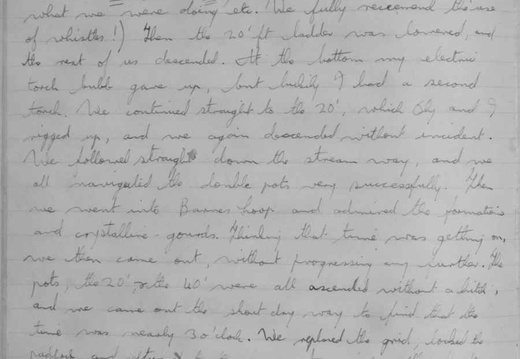 what we were doing etc. We fully reccomend the use
of whistles!) Then the 20' ft ladder was lowered, and
the rest of us descended. At the bottom my electric
torch bulb gave up, but luckily I had a second
torch. We continued straight to the 20', which Oly and I
rigged up, and we again descended without incident.
We followed straight down the stream way, and we
all navigated the double pots very successfully. Then
we went into Barnes Loop and admired the formations
and crystalline gourds. Thinking that time was getting on,
we then came out, without progressing any further. The
pots, the 20', & the 40' were all ascended without a hitch,
and we came out the short dry way to find that the
time was nearly 3 o'clock. We replaced the grid, locked the
padlock and